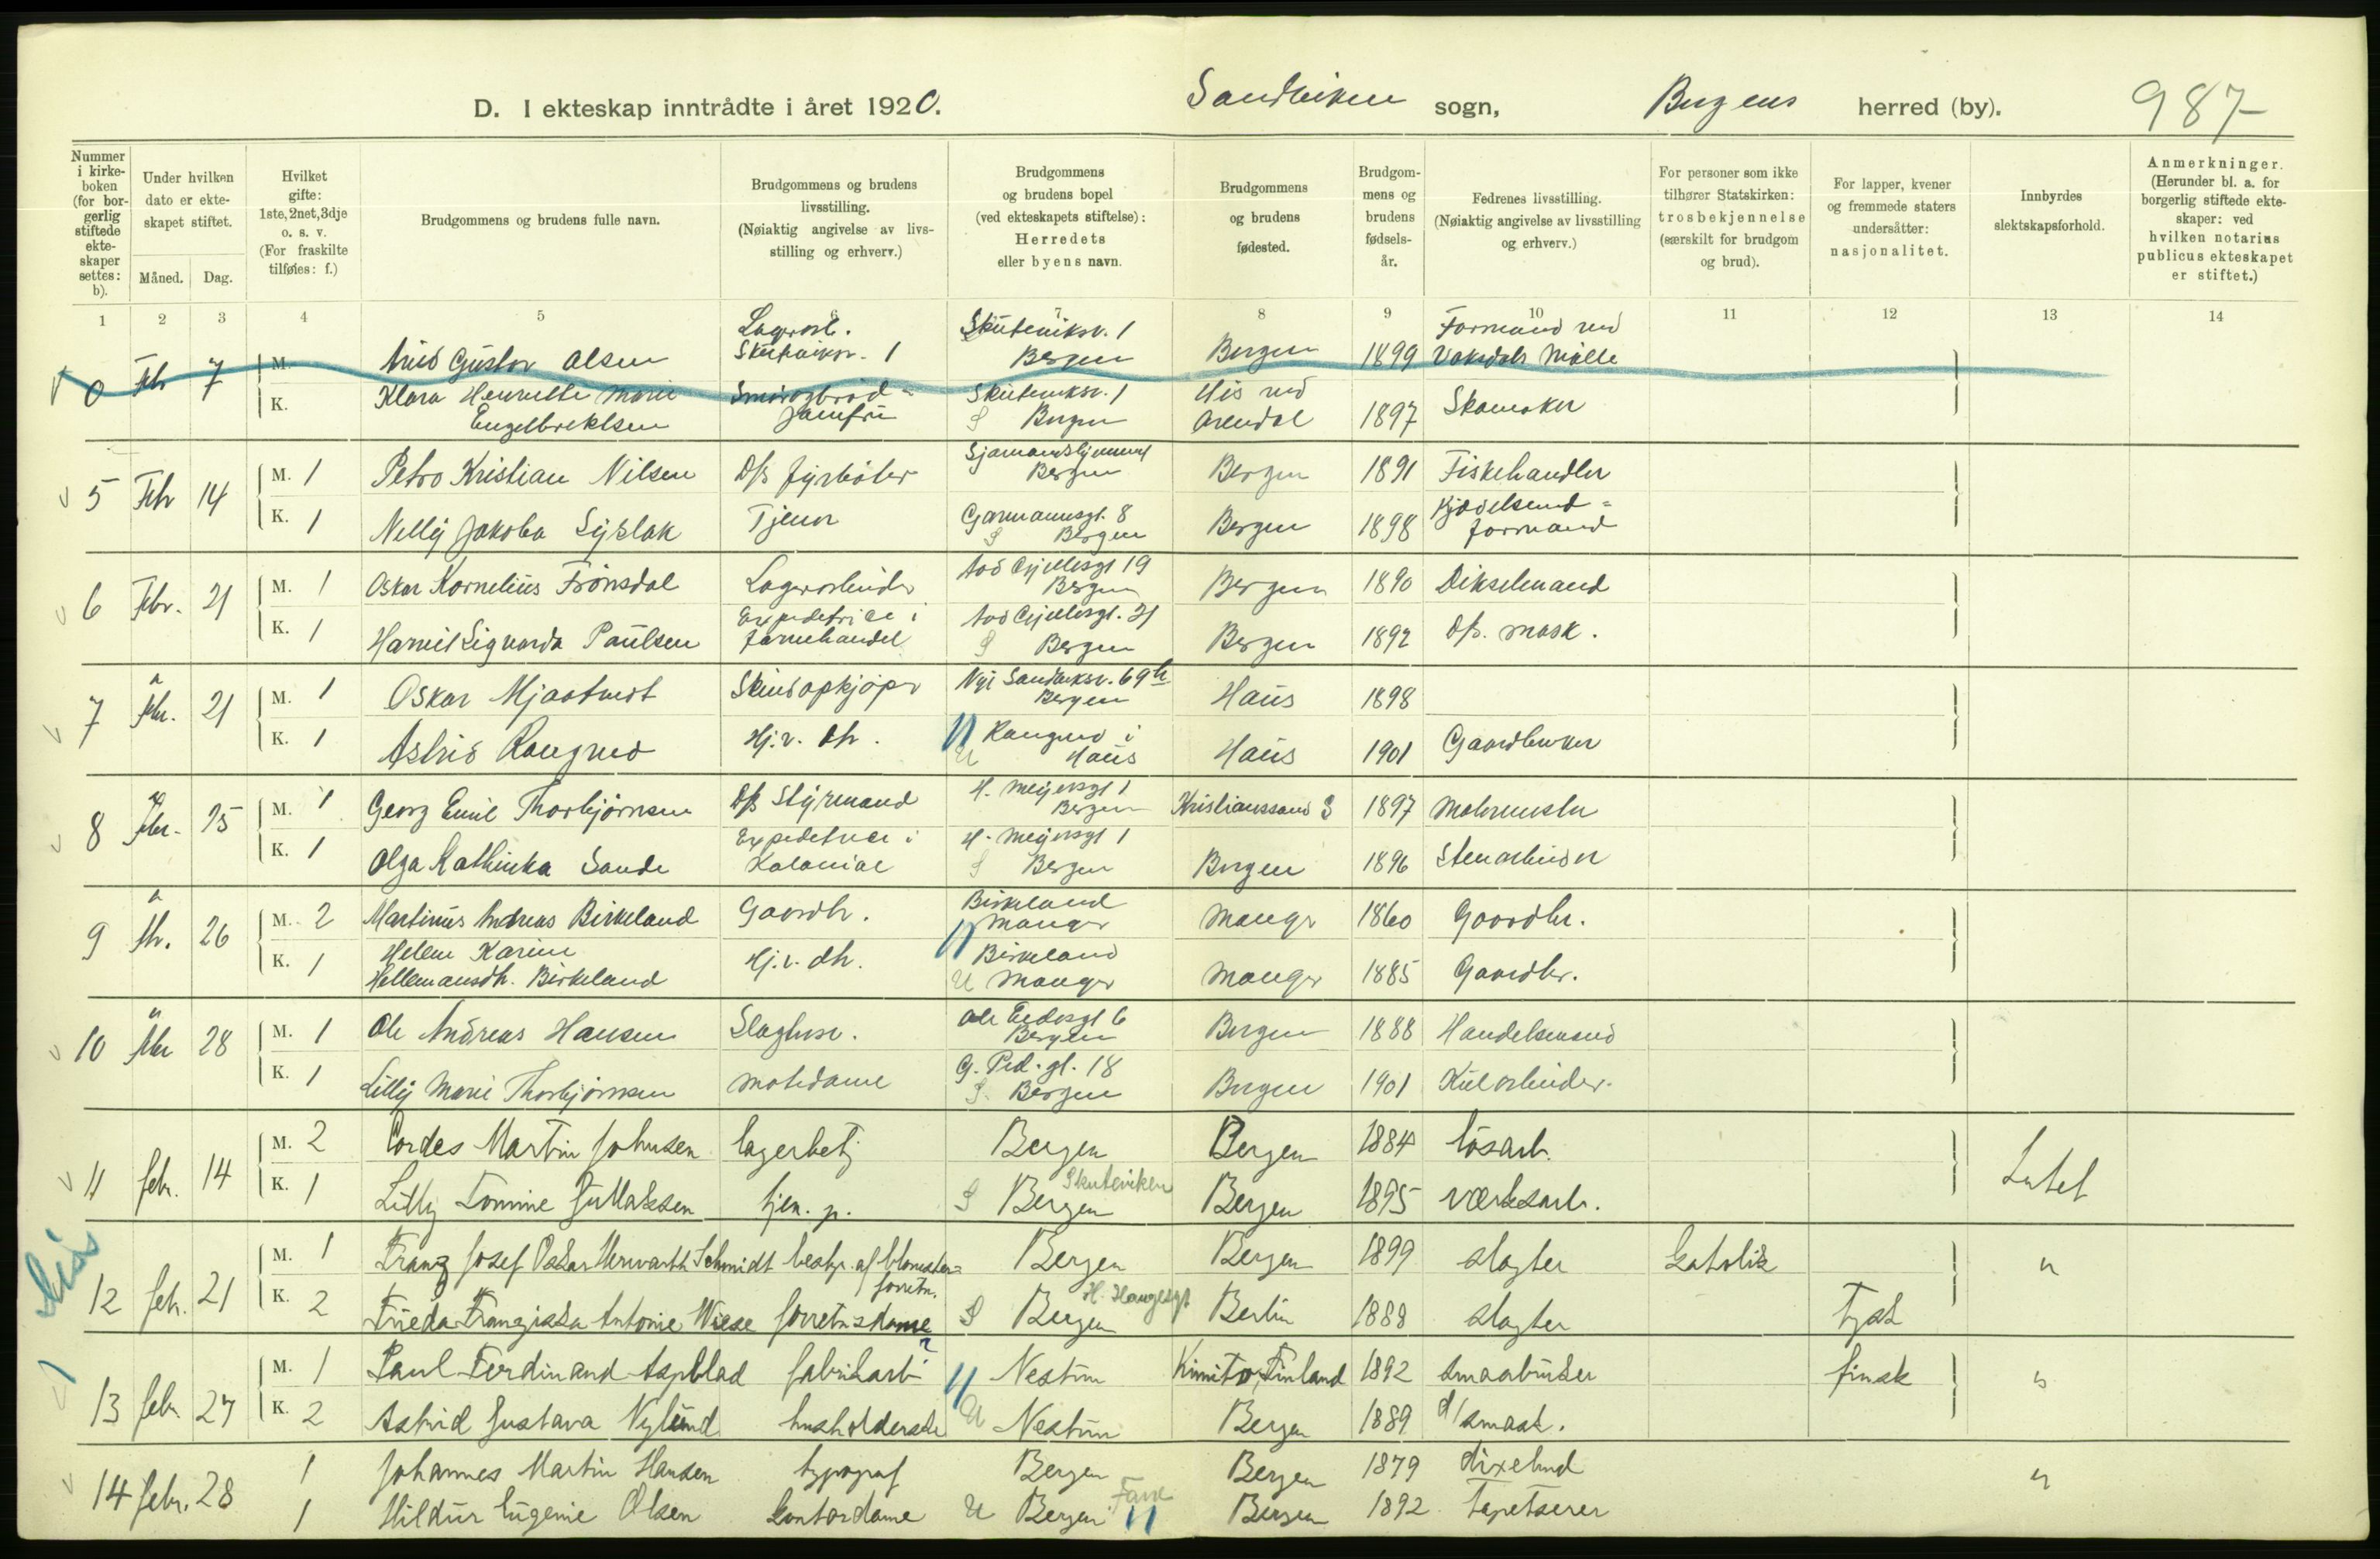 D. I ekteskap inntrådte i året 1920. Sandviken sogn, Bergens herred (by). 987
Nummer i kirkeboken (for borgerlig stiftede ekteskaper settes: b).
Under hvilken dato er ekteskapet stiftet.
Måned. Dag.
Hvilket gifte: 1ste, 2net, 3dje o. s. v. (For fraskilte tilføies: f.)
Brudgommens og brudens fulle navn.
Brudgommens og brudens livsstilling. (Nøiaktig angivelse av livsstilling og erhverv.)
Brudgommens og brudens bopel (ved ekteskapets stiftelse): Herredets eller byens navn.
Brudgommens og brudens fødested.
Brudgommens og brudens fødselsår.
Fedrenes livsstilling. (Nøiaktig angivelse av livsstilling og erhverv.)
For personer som ikke tilhører Statskirken: trosbekjennelse (særskilt for brudgom og brud).
For lapper, kvener og fremmede staters undersåtter: nasjonalitet.
Innbyrdes slektskapsforhold.
Anmerkninger. (Herunder bl. a. for borgerlig stiftede ekteskaper: ved hvilken notarius publicus ekteskapet er stiftet.)
1 2 3 4 5 6 7 8 9 10 11 12 13 14
0 Feb 7 M. Arvid Gustav Olsen Skuteviksv. 1 Skuteviksv. 1 Bergen Bergen 1899 Formand ved Vaksdals Mølle
K. Klara Henriette Marie Engelbrektsen Smørogbrød= Jomfru Skuteviksv. 1 S Bergen His ved Arendal 1897 Skomaker
5 Feb 14 M. 1 Petro Kristian Nilsen D/s fyrbøter Sjømandshjemmet Bergen Bergen 1891 Fiskehandler
K. 1 Nelly Jakoba Lyslak Tjener Garmannsgt. 8 S Bergen Bergen 1898 formand
6 Febr. 21 M. 1 Oskar Kornelius Frønsdal Lagerarbeider Aad Gjellesgt 19 Bergen Bergen 1890 Dikselmand
K. 1 Sigvarda Paulsen Expeditrice i Jernhandel Aad Gjellesgt. 21 S Bergen Bergen 1892 D/s. mask.
7 Febr. 21 M. 1 Oskar Mjaatvedt Skindopkjøper Nye Sandviksv. 69 b Bergen Haus 1898
K. 1 Astrid Haus Hj. v. dtr. i U Haus Haus 1901 Gaardbruker
8 Febr. 25 M. 1 Georg Emil Thorbjørnsen D/s Styrmand H. Meyersgt 1 Bergen Kristianssand S 1897 Malermester
K. 1 Olga Kathinka Sande Expeditrice i Kolonial H. Meyersgt 1 S Bergen Bergen 1896 Stenarbeider
9 26 M. 2 Martinus Andreas Birkeland Gaardbr. Birkeland Manger Manger 1860 Gaardbr.
K. 1 Helene Karine Hellemansdtr. Birkeland Hj. v. dtr. Birkeland U Manger Manger 1885 Gaardbr.
10 Febr 28 M. 1 Ole Andreas Hansen Slagtersv. Bergen Bergen 1888 Handelsmand
K. 1 Lilly Marie Thorbjørnsen Motedame G. Péd. gt. 18 S. Bergen Bergen 1901 Kularbeider.
11 febr. 14 M. 2 Cordes Martin Johnsen lagerbetj Bergen Bergen 1884 løsarb.
K. 1 Lilly Tomine Gullaksen tjen. p. S Bergen Skuteviken Bergen 1895 værksarb. Intet
12 febr. 21 M. 1 Franz Josef Oskar Herwarth Schmidt bestyr. af blomster= forretn. Bergen Bergen 1899 slagter katolik "
K. 2 Frieda Franziska Antonie Wiese forretnsdame S Bergen H. Haugesgt Berlin 1888 slagter tysk
13 febr. 27 M. 1 Paul Ferdinand Aspblad fabrikarb. Nestun Kimito, Finland 1892 smaabruker finsk "
K. 2 Astrid Gustava Nylund husholderske U Nestun Bergen 1889 d/smask.
14 febr. 28 1 Johannes Martin Hansen typograf Bergen Bergen 1879 dixelmd "
1 Hildur Eugenie Olsen kontordame U Bergen Fane Bergen 1892 Tapetserer